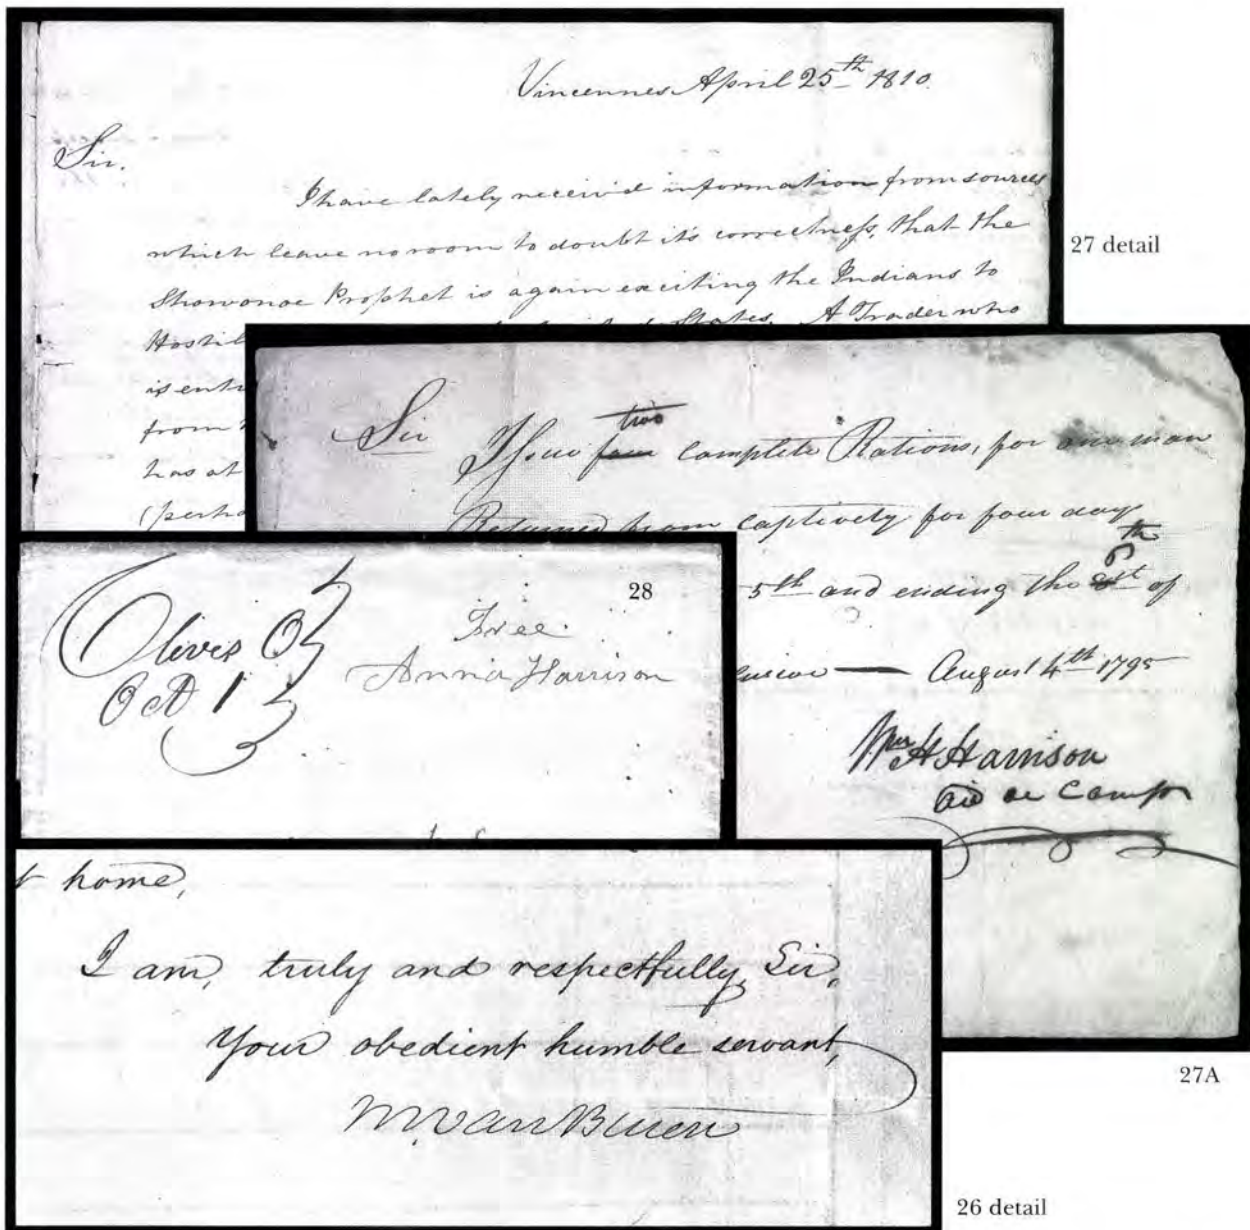 Vincennes April 25th 1810.
Sir.
I have lately received information from sources
which leave no room to doubt it's correctness, that the
Shawonoe Prophet is again exciting the Indians to
Hostil
States. A Trader who
is ent
from
has at
(perha
27 detail
Sir Issue four two complete Rations, for one man
Returned from captivity for four day
5th and ending the 6th of
August 4th 1795
Wm H Harrison
Aid de Camp
27A
28
Olives O
Oct 1
Free
Anna Harrison
t home,
I am, truly and respectfully, Sir,
Your obedient humble servant,
M. Van Buren
26 detail